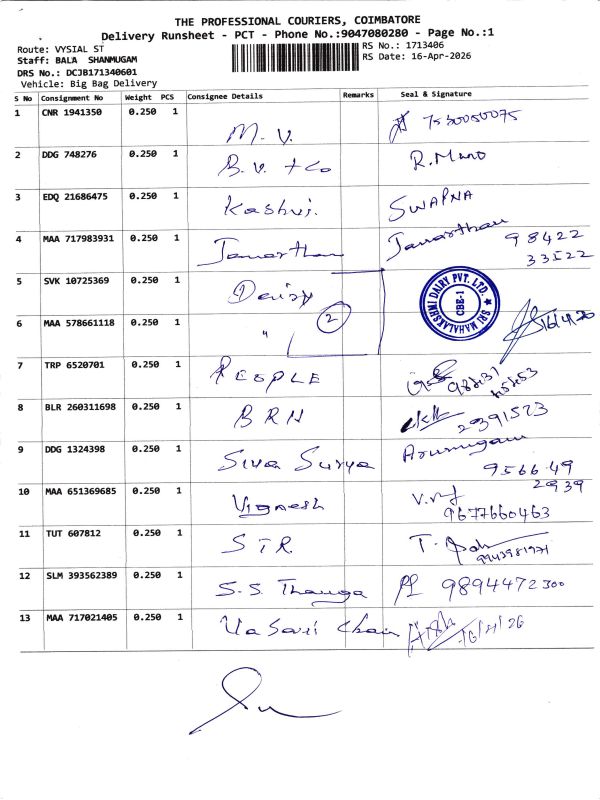 THE PROFESSIONAL COURIERS, COIMBATORE
Delivery Runsheet - PCT - Phone No.:9047080280 - Page No.:1
Route: VYSIAL ST
RS No.: 1713406
Staff: BALA SHANMUGAM
RS Date: 16-Apr-2026
DRS No.: DCJB171340601
Vehicle: Big Bag Delivery
S No Consignment No Weight PCS Consignee Details Remarks Seal & Signature
1 CNR 1941350 0.250 1 M. V. 7530050075
2 DDG 748276 0.250 1 B. V. + Co R. Mano
3 EDQ 21686475 0.250 1 Kashvi. SWAPNA
4 MAA 717983931 0.250 1 Janarthan Janarthan 98422
33522
5 SVK 10725369 0.250 1 Dairy
SRI MAHALAKSHMI DAIRY PVT. LTD. CBE-1
6 MAA 578661118 0.250 1 " 2 16/4/26
7 TRP 6520701 0.250 1 PEOPLE 98431
45453
8 BLR 260311698 0.250 1 BRN 2391523
9 DDG 1324398 0.250 1 Siva Surya Arumugam
9566 49
2939
10 MAA 651369685 0.250 1 Vignesh
9677660463
11 TUT 607812 0.250 1 STR. T.
9943981971
12 SLM 393562389 0.250 1 S. S. Thanga 9894472300
13 MAA 717021405 0.250 1 Vasavi Chain 16/4/26